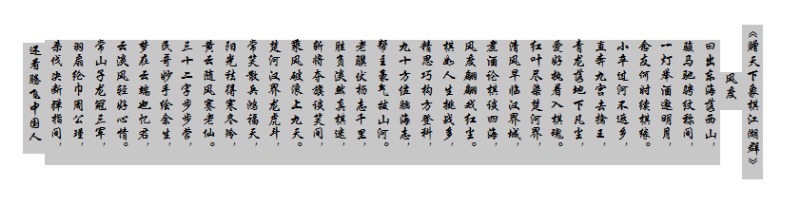 《赠天下象棋江湖群》
风度
日出东海落西山，
骏马驰骋纹称间，
一灯举酒邀明月，
念友何时续棋缘。
小卒过河不返乡，
直奔九宫去擒王，
青龙落地下凡尘，
爱好执着入棋魂。
红叶尽染楚河界，
清风早临汉界城，
煮酒论棋谈四海，
风度翩翩戏红尘。
棋如人生挑战多，
精思巧构方登科，
九十方位胸海志，
帮主豪气拔山河。
老骥伏杨志千里，
胜负淡然真棋迷，
斩将夺旗谈笑间，
乘风破浪上九天。
楚河汉界龙虎斗，
常笑散兵鸿福天，
阳光祛得寒冬冷，
黄云随风寒老仙。
三十二字步步营，
民哥妙手绘余生，
梦在云端也忆君，
云淡风轻好心情。
常山子龙冠三军，
羽扇纶巾周公瑾，
杀伐决断弹指间，
还看腾飞中国人